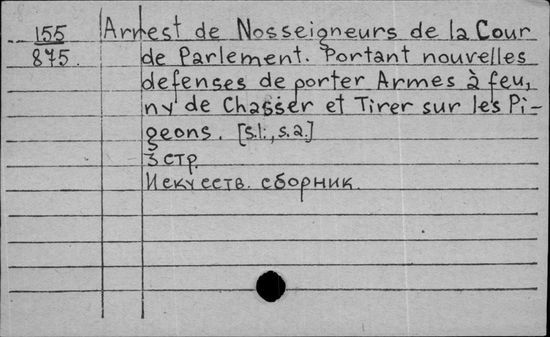 155 Arrest de Nosseigneurs de la Cour
875. de Parlement. Portant nouvelles
defenses de porter Armes à feu,
ny de Chasser et Tirer sur les Pi-
geons. [s.l., s.a.]
3 стр.
Искусств. сборник.